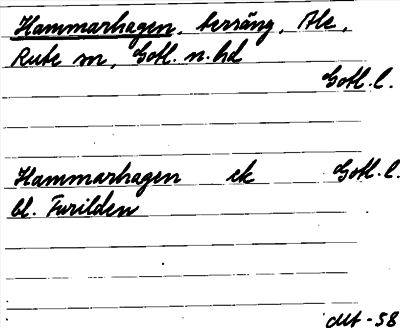 Hammarhagen, beräng, Ale,
Rute sn, Gotl. n. hd
Gotl. l.
Hammarhagen ek Gotl. l.
bl. Furilden
-58